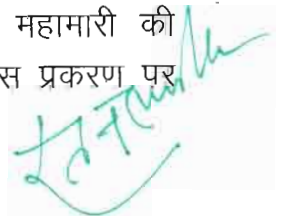 महामारी की
स प्रकरण पर